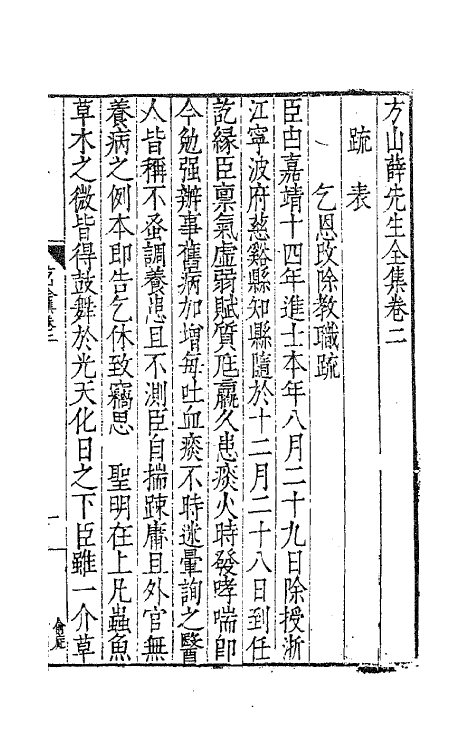 方山薛先生全集卷二
疏表
乞恩改除教職疏
臣由嘉靖十四年進士本年八月二十九日除授浙
江寧波府慈谿縣知縣隨於十二月二十八日到任
訖緣臣禀氣虛弱賦質尫羸久患痰火時發哮喘即
今勉强辦事舊病加增每吐血痰不時迷暈詢之醫
人皆稱不蚤調養患且不測臣自揣踈庸且外官無
養病之例本即告乞休致竊思　聖明在上凡蟲魚
草木之微皆得鼓舞於光天化日之下臣雖一介草
方山全集卷二
一